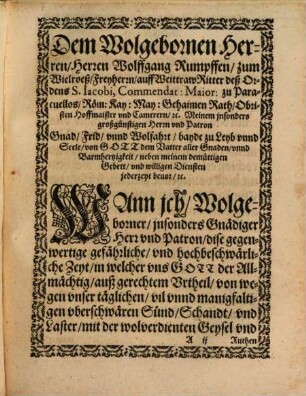 Dem Wolgebornen Her-
ren/Herren Wolffgang Rumpffen/zum
Wielroeß/Freyherrn/auff Weittraw Ritter deß Or-
dens S. Iacobi, Commendat: Maior: zu Para-
cuellos/Röm: Kay: May: Gehaimen Rath/Obri-
sten Hoffmaister vnd Camerern/ꝛc. Meinem jnsonders
großgünstigen Herrn vnd Patron
Gnad/Frid/vnnd Wolfahrt/bayde zu Leyb vnnd
Seele/von GOTT dem Vatter aller Gnaden/vnnd
Barmhertzigkeit/neben meinem demüttigen
Gebett/vnd willigen Diensten
jederzeyt beuor/ꝛc.
WAnn jch/Wolge-
borner/jnsonders Gnädiger
Herr vnd Patron/dise gegen-
wertige gefährliche/vnd hochbeschwärli-
che Zeyt/in welcher vns GOTT der All-
mächtig/auß gerechtem Vrtheil/von we-
gen vnser täglichen/vil vnnd mannigfalti-
gen vberschwären Sünd/Schandt/vnd
Laster/mit der wolverdienten Geysel vnd
A ij Ruthen